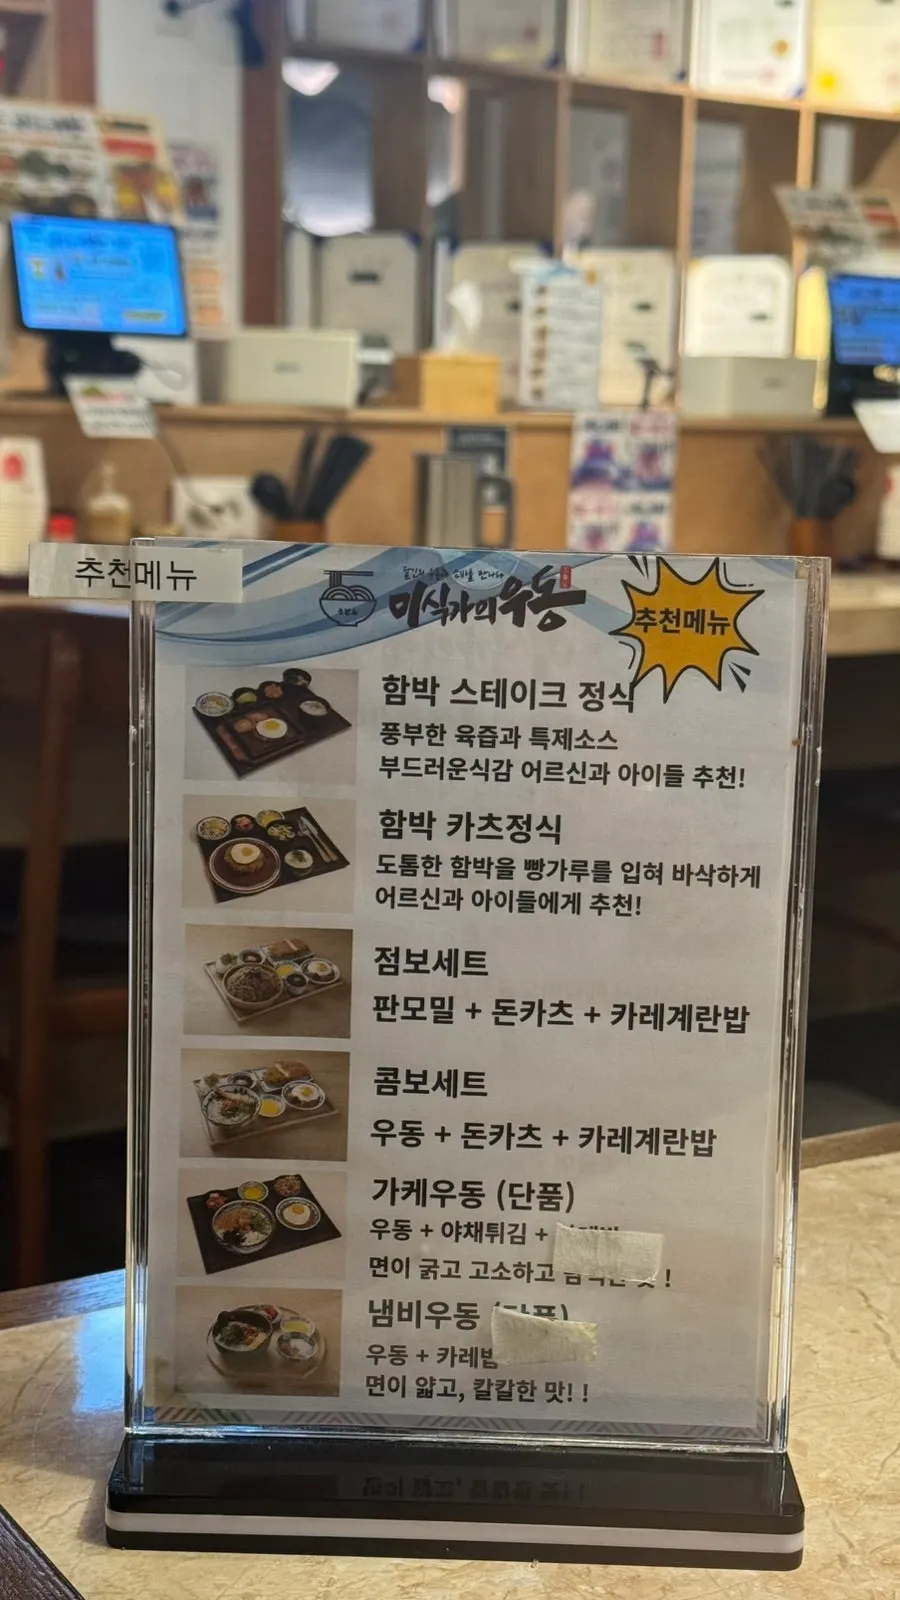 추천메뉴
미식가의우동
추천메뉴
함박 스테이크 정식
풍부한 육즙과 특제소스
부드러운식감 어르신과 아이들 추천!
함박 카츠정식
도톰한 함박을 빵가루를 입혀 바삭하게
어르신과 아이들에게 추천!
점보세트
판모밀 + 돈카츠 + 카레계란밥
콤보세트
우동 + 돈카츠 + 카레계란밥
가케우동 (단품)
우동 + 야채튀김 +
면이 굵고 고소하고 !
냄비우동
우동 + 카레밥
면이 얇고, 칼칼한 맛! !